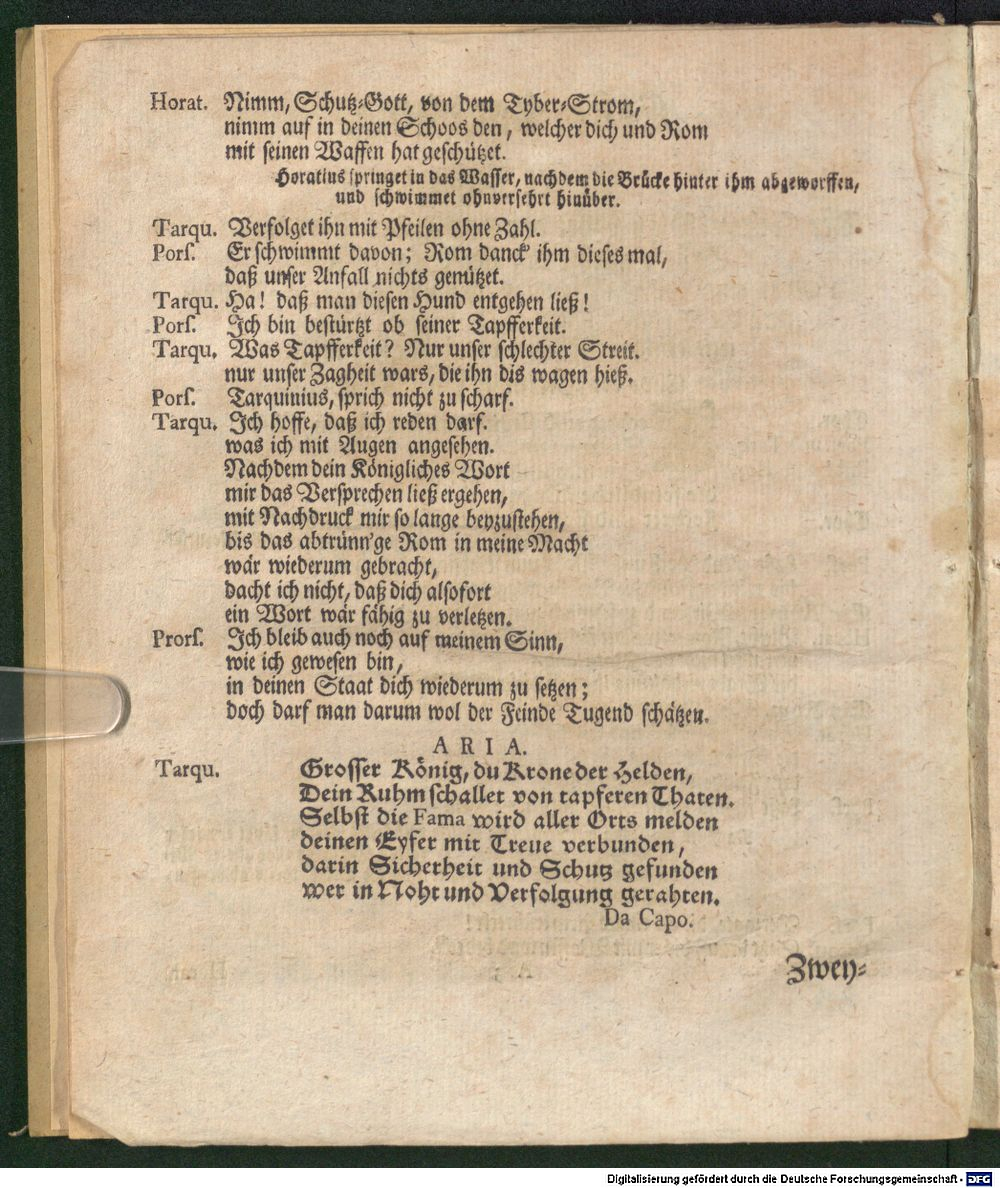 Horat. Nimm, Schutz-Gott, von dem Tyber-Strom,
nimm auf in deinen Schoos den, welcher dich und Rom
mit seinen Waffen hat geschützet.
Horatius springet in das Wasser, nachdem die Brücke hinter ihm abgeworffen,
und schwimmet ohnversehrt hinüber.
Tarqu. Verfolget ihn mit Pfeilen ohne Zahl.
Pors. Er schwimmt davon; Rom danck' ihm dieses mal,
daß unser Anfall nichts genützet.
Tarqu. Ha! daß man diesen Hund entgehen ließ!
Pors. Ich bin bestürtzt ob seiner Tapfferkeit.
Tarqu. Was Tapfferkeit? Nur unser schlechter Streit.
nur unser Zagheit wars, die ihn dis wagen hieß.
Pors. Tarquinius, sprich nicht zu scharf.
Tarqu. Ich hoffe, daß ich reden darf.
was ich mit Augen angesehen.
Nachdem dein Königliches Wort
mir das Versprechen ließ ergehen,
mit Nachdruck mir so lange beyzustehen,
bis das abtrünn'ge Rom in meine Macht
wär wiederum gebracht,
dacht ich nicht, daß dich alsofort
ein Wort wär fähig zu verletzen.
Prors. Ich bleib auch noch auf meinem Sinn,
wie ich gewesen bin,
in deinen Staat dich wiederum zu setzen;
doch darf man darum wol der Feinde Tugend schätzen.
ARIA.
Tarqu. Grosser König, du Krone der Helden,
Dein Ruhm schallet von tapferen Thaten.
Selbst die Fama wird aller Orts melden
deinen Eyfer mit Treue verbunden,
darin Sicherheit und Schutz gefunden
wer in Noht und Verfolgung gerahten.
Da Capo.
Zwey-
Digitalisierung gefördert durch die Deutsche Forschungsgemeinschaft - DFG